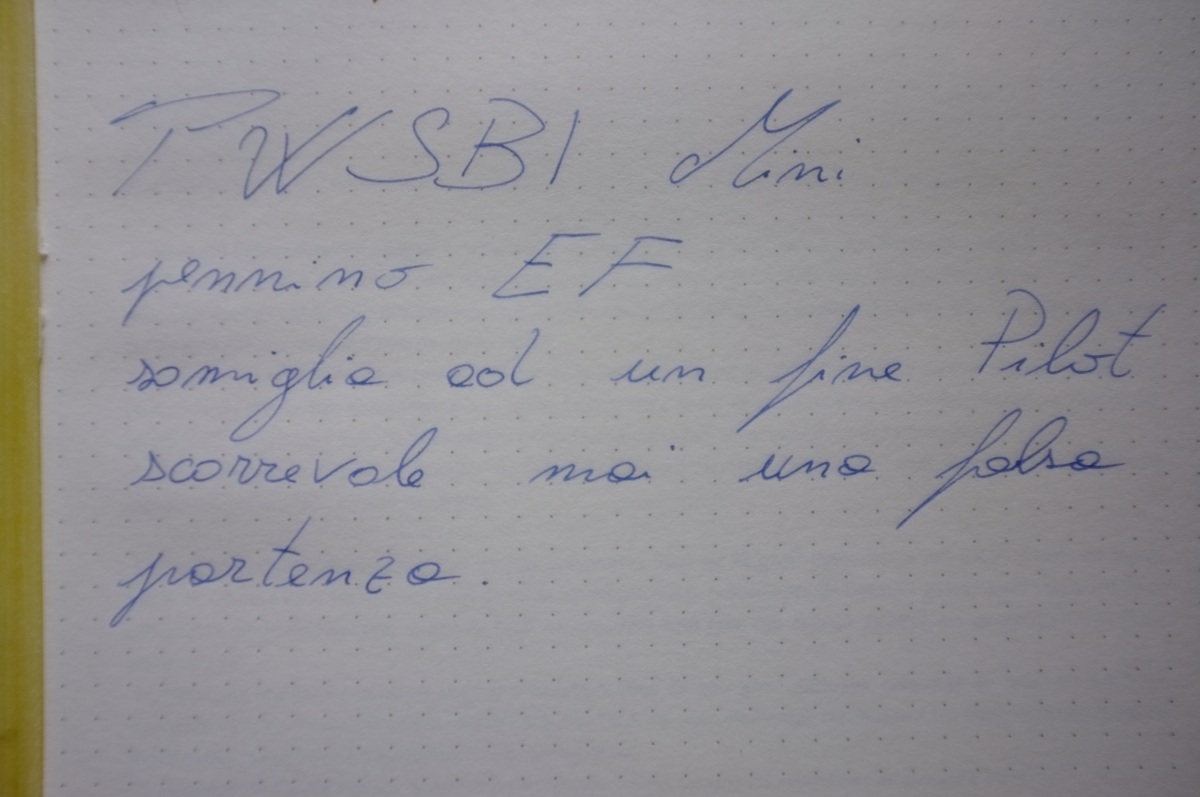 TWSBI Mini
pennino EF
somiglia ad un fine Pilot
scorrevole mai una falsa
partenza.